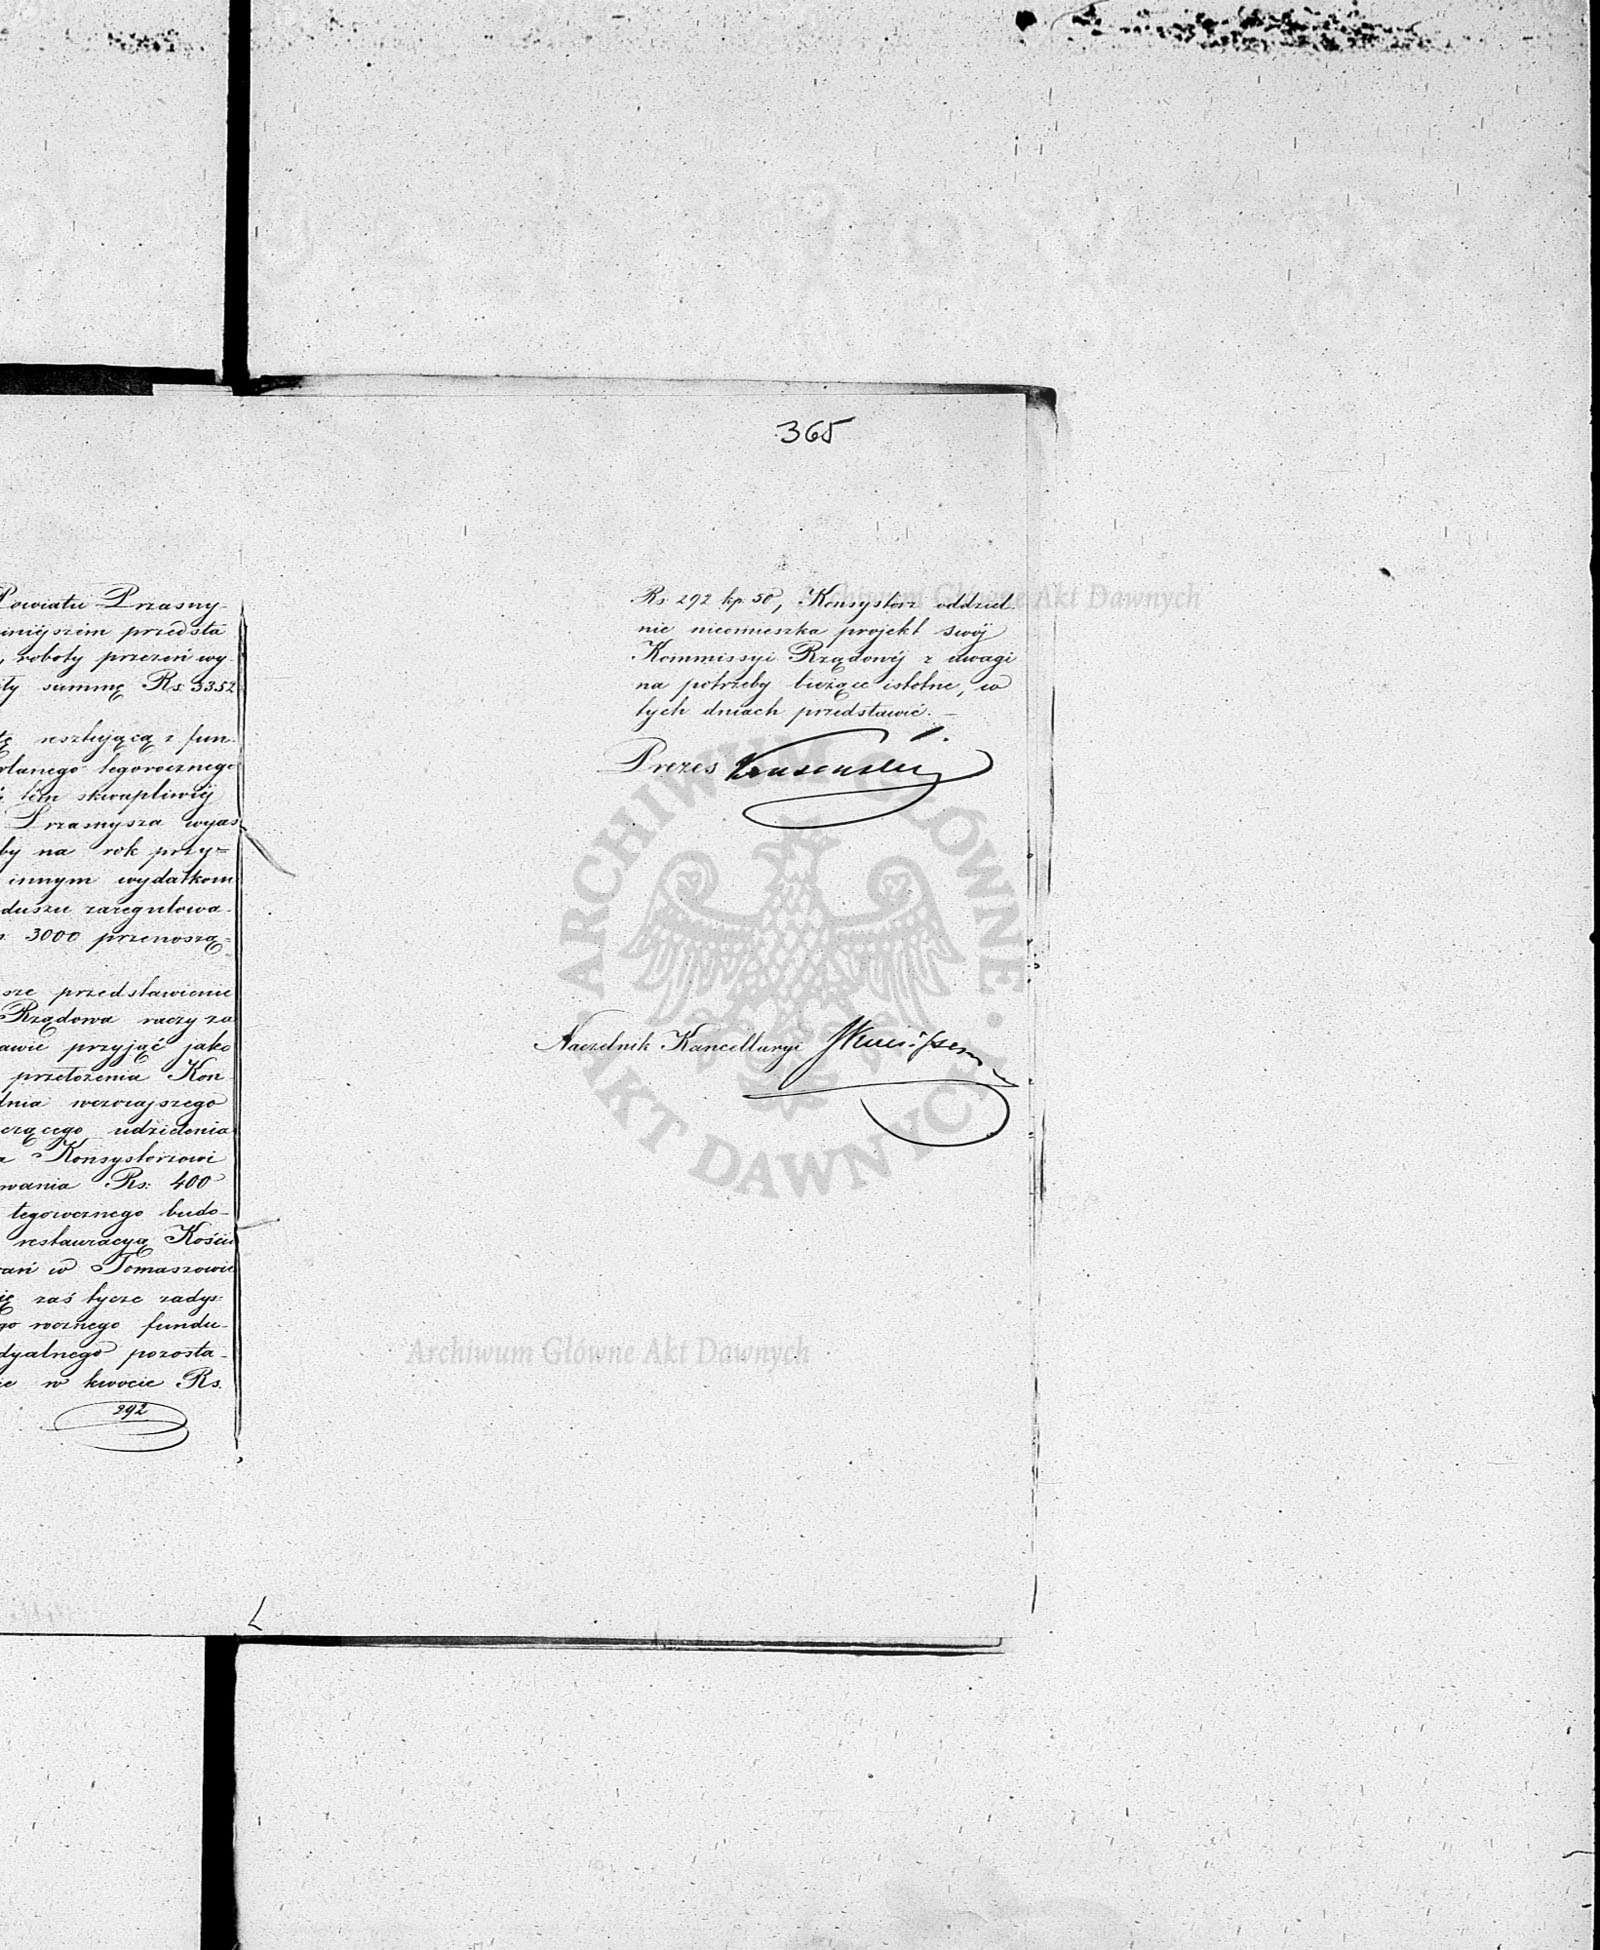 Powiatu Przasny-
iniejszém przedsta
, roboty przezeń wy-
summę Rs. 3352
resztującą z fun-
tegorocznego
tém skwapliwiéj
Przasnysza wyas
by na rok przy=
innym wydatkom
duszu zaregulowa-
3000 przenoszą=
sze przedstawienie
Rządowa raczy za
przyjąć jako
przełożenia Kon-
dnia wczorajszego
udzielenia
Konsystorzowi
wania Rs: 400
tegorocznego budo-
restauracyą Kościo
w Tomaszowie
zaś tycze zadys-
go rocznego fundu-
dyalnego pozosta-
w kwocie Rs.
292
365
Rs. 292 kp. 50, Konsystorz oddziel-
nie nieomieszka projekt swój
Kommissyi Rządowéj z uwagi
na potrzeby bieżące istotne, w
tych dniach przedstawić. –
Prezes
Naczelnik Kancellaryi
Archiwum Główne Akt Dawnych
ARCHIWUM GŁÓWNE • AKT DAWNYCH •
Archiwum Główne Akt Dawnych